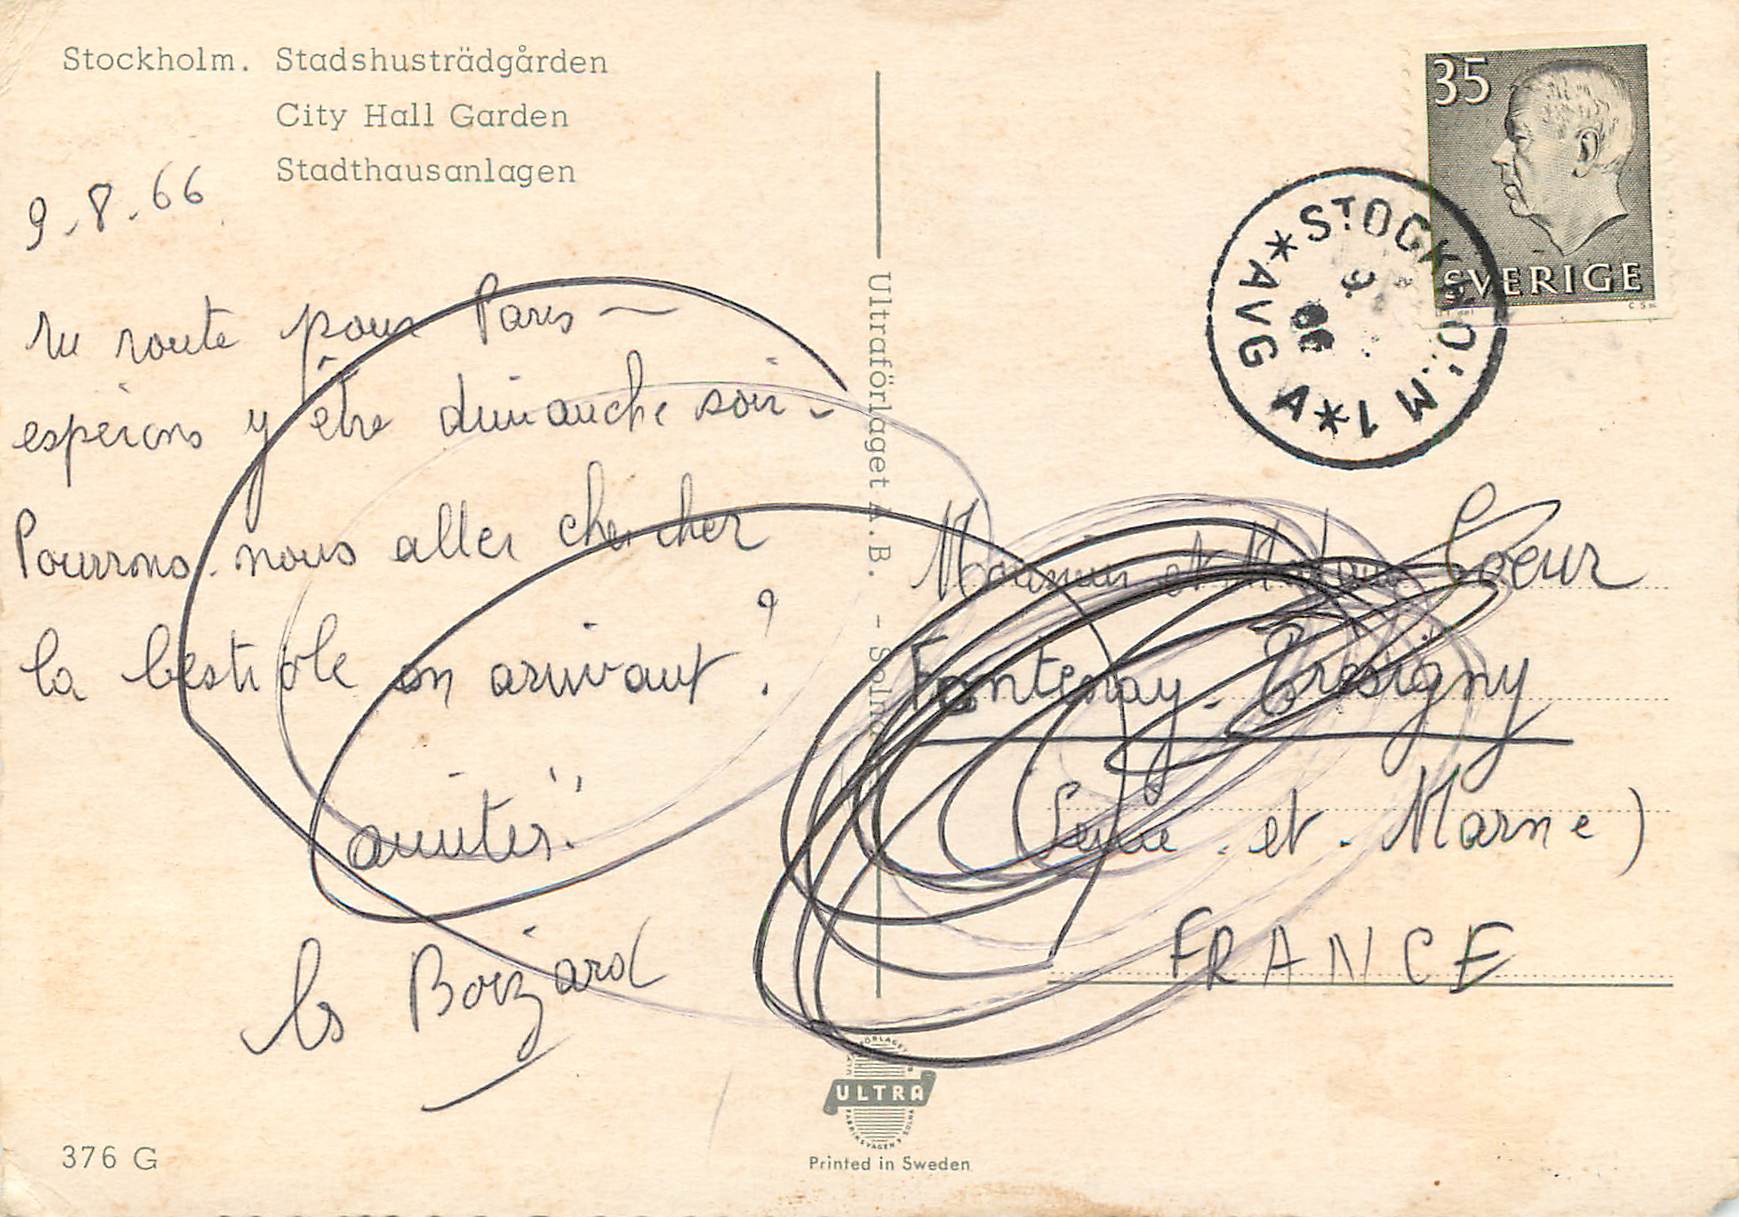 Stockholm. Stadshusträdgården
City Hall Garden
Stadthausanlagen
9.8.66
En route pour Paris –
espérons y être dimanche soir –
Pourrons-nous aller chercher
la bestiole en arrivant ?
amitiés.
les Boizard
376 G
Ultraförlaget A.B. - Solna
ULTRA
Printed in Sweden
35
SVERIGE
STOCKHOLM 1 * A
* AVG
9
66
Monsieur et Madame Coeur
Fontenay-Trésigny
(Seine-et-Marne)
FRANCE